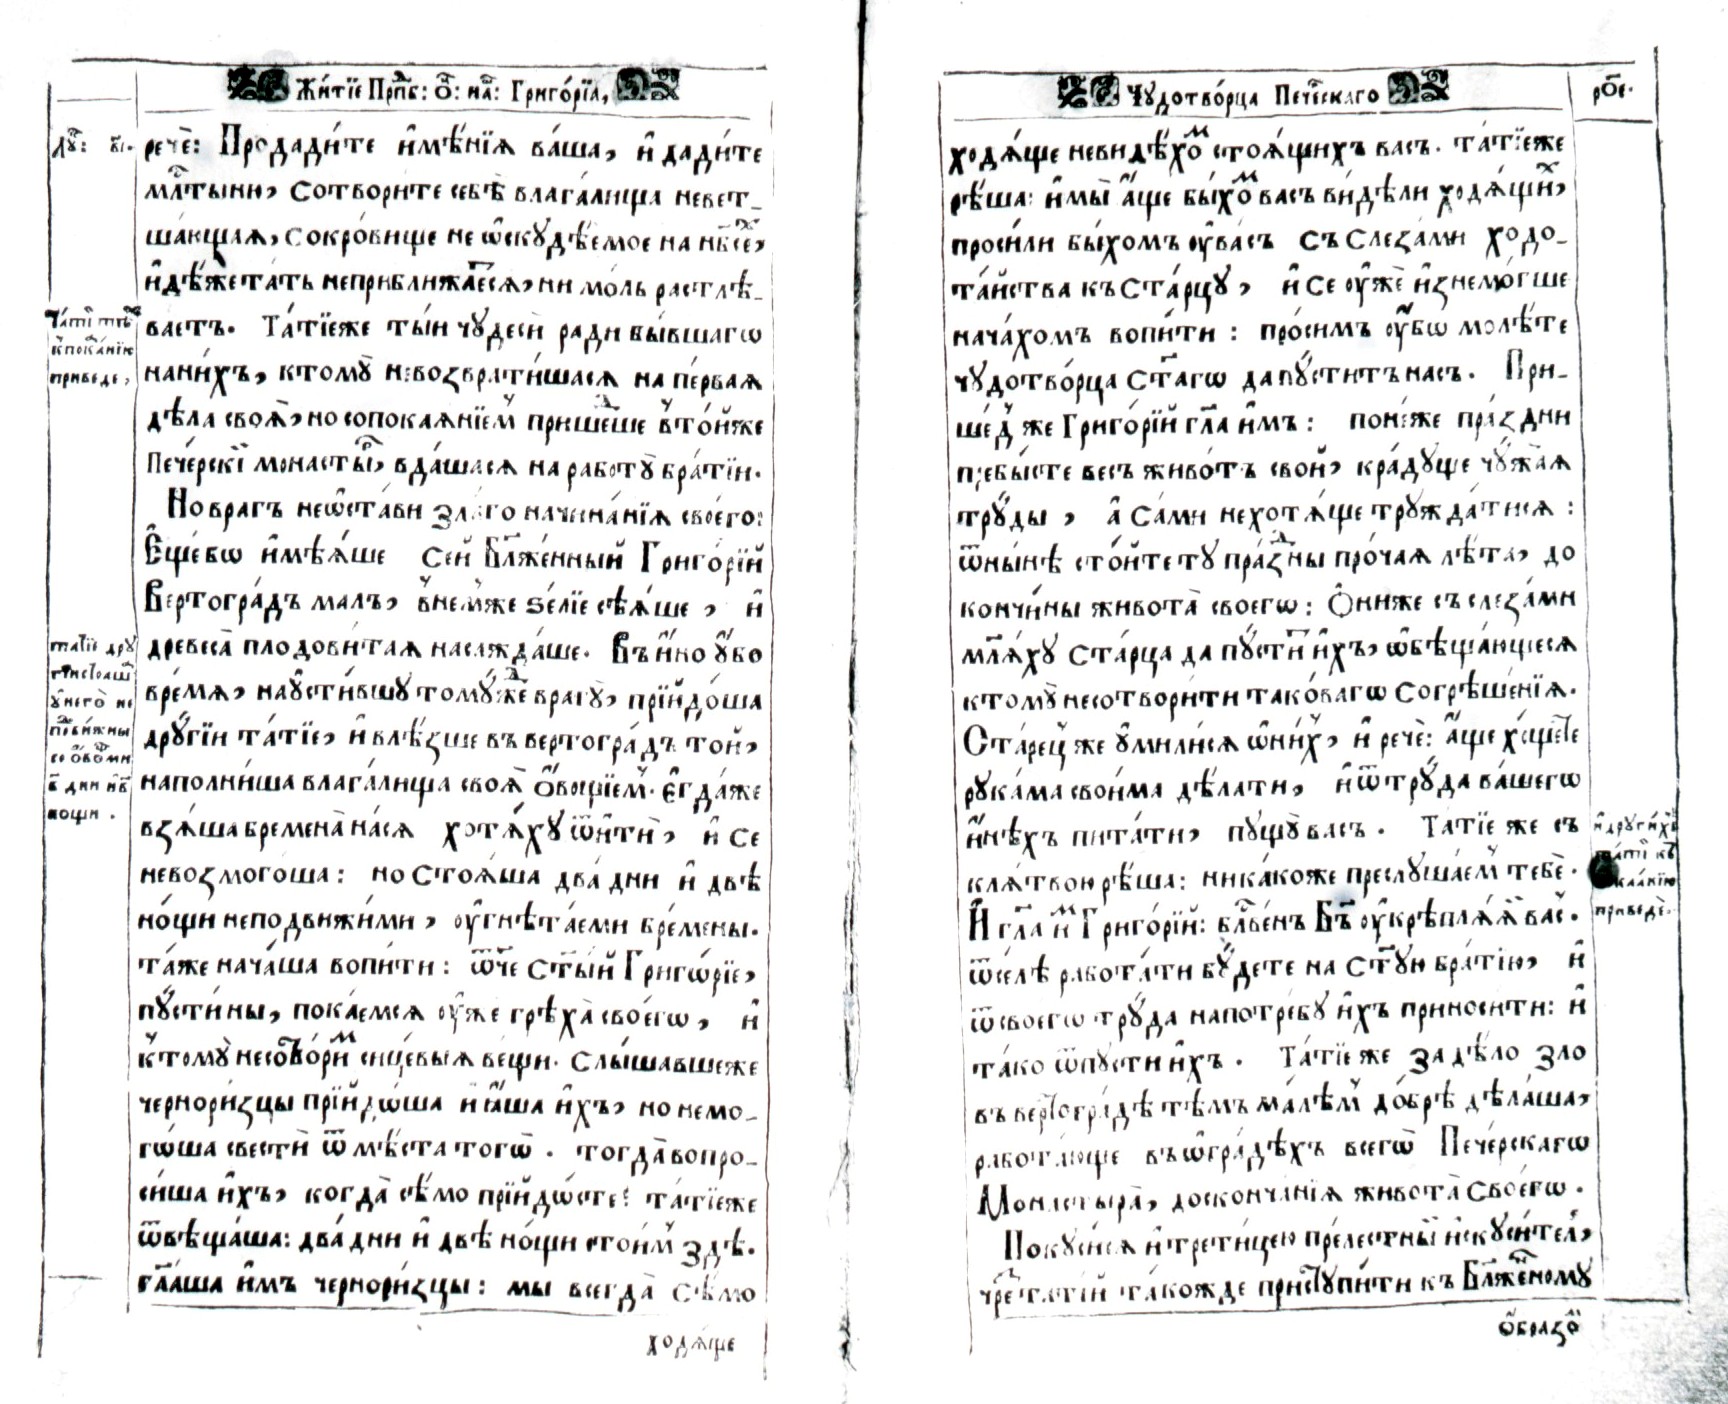 Жи́тїе Прпⷣб: ѻ҃: на́: Григо́рїа,
Лꙋ҃: в҃і.
речѐ: Прода́дите и҆мѣ́нїѧ ва́ша, и҆ дади́те
млⷭ҇тыни, Сотвори́те себѣ̀ влага́лища невет_
ша́юща́ѧ, Сокро́вище не ѡ҆скꙋдѣ́емое на нб҃сѣ́хъ,
и҆дѣ́же та́ть неприближа́етсѧ, ни мо́ль растлѣ̀_
ваетъ. Та́тїеже ты́и чꙋдесѝ ради бы́вшагѡ
нани́хъ, ктомꙋ̀ невозврати́шасѧ на пе́рваѧ
дѣ́ла своѧ̀, но сопокаѧ́нїемъ прише́дше в̾то́йже
Пече́рскїй монасты́рь, вда́шасѧ на работꙋ̀ бра́тїи.
Но врагъ неѡ҆ста́ви зла́го начина́нїѧ своего̀:
Е҆ще́бѡ и҆мѣ́ѧше Сей Бл҃же́нный Григо́рїй
Вертогра́дъ малъ, в̾не́мже ѕе́лїе сѣ́ѧше, и҆
древеса̀ плодови́таѧ насажда́ше. Въ и҆но ᲂу҆бо
вре́мѧ, наꙋсти́вшꙋ томꙋ́жде врагꙋ̀, прїидо́ша
дрꙋ́гїи та́тїе, и҆ влѣ́зше въ вертогра́дъ той,
наполни́ша влага́лища своѧ̀ ѻ҆во́щїемъ. Е҆гда́же
взѧ́ша бремена̀ на́сѧ хотѧ́хꙋ ѿи҆тѝ, и҆ се
невозмого́ша: но Стоѧ́ша два̀ дни и҆ двѣ̀
но́щи неподви́жими, ᲂу҆гнѣта́еми бре́мены.
та́же нача́ша вопи́ти: ѿче Ст҃ы́й Григѡ́рїе,
пꙋсти́ны, пока́емсѧ ᲂу҆́же грѣха̀ своегѡ̀, и҆
к̾томꙋ̀ несотвори́мъ сицевы́ѧ ве́щи. Слы́шавшеже
черно́ри́зцы прїидѡ́ша и҆ ꙗ҆́ша и҆хъ, но немо_
гѡ́ша свестѝ ѿ мѣ́ста тогѡ̀. тогда̀ вопро_
си́ша и҆хъ, когда̀ сѣ́мо прїидѡ́сте; та́тїеже
ѿвѣща́ша: два̀ дни и҆ двѣ̀ но́щи стои́мъ здѣ̀.
гл҃а́ша и҆мъ черно́ри́зцы: мы всегда̀ сѣ́мо
ходѧ́ще
Та́тїй тѣ́хъ
к̾покаѧ́нїю
приведе,
татїе дрꙋ
гїи стоѧша
ᲂу҆ негѡ̀ не
подви́жны
со ѻ҆во́щми
в҃ дни и҆ в҃
нощи.
Чꙋдотво́рца Пече́рскаго
рѻ҃е.
ходѧ́ще невидѣ́хомъ стоѧ́щихъ васъ. та́тїеже
рѣ́ша: и҆ мы̀ а҆́ще бы́хомъ васъ ви́дѣли ходѧ́щихъ,
проси́ли бы́хомъ ᲂу҆ва́съ съ Слеза́ми ходо_
та́йства къ Ста́рцꙋ, и҆ Се ᲂу҆жѐ и҆знемо́гше
нача́хомъ вопи́ти: про́симъ ᲂу҆́бѡ молѣ́те
чꙋдотво́рца Ст҃агѡ дапꙋ́ститъ насъ. При_
ше́дъ же Григо́рїй гл҃а и҆мъ: поне́же пра́здни
пребы́сте весь живо́тъ свой, кра́дꙋще чꙋжа́ѧ
трꙋды̀, а҆ Са́ми не хотѧ́ще трꙋжда́тисѧ:
ѿны́нѣ сто́йте тꙋ пра́здны про́чаѧ лѣ́та, до
кончи́ны живота̀ своегѡ̀: Ѻ҆ниже съ слеза́ми
млѧ́хꙋ Ста́рца да пꙋ́ститъ и҆хъ, ѡ҆бѣща́ющесѧ
ктомꙋ̀ несотвори́ти тако́вагѡ Согрѣше́нїѧ.
Ста́рецъ же ᲂу҆мили́сѧ ѡ҆ни́хъ, и҆ речѐ: а҆́ще хо́щете
рꙋка́ма свои́ма дѣ́лати, и҆ ѿ трꙋда̀ ва́шегѡ
и҆нѣ́хъ пита́ти, пꙋщꙋ̀ васъ. Та́тїе же съ
клѧ́твою рѣ́ша: ника́коже преслꙋша́емъ тебѐ.
И҆ гл҃а и҆мъ Григо́рїй: блⷭ҇ве́нъ Бг҃ъ ᲂу҆крѣплѧ́ѧй васъ.
ѿсе́лѣ рабо́тати бꙋ́дете на Ст҃ꙋю бра́тїю, и҆
ѿ своегѡ̀ трꙋда̀ напотре́бꙋ и҆хъ приноси́ти: и҆
та́ко ѿпꙋсти и҆хъ. Та́тїе же задѣ́ло зло
въ вертогра́дѣ тѣ́мъ ма́лѣмъ до́брѣ дѣ́лаша,
рабо́тающе въ ѡ҆гра́дѣхъ всегѡ̀ Пече́рскагѡ
Монастырѧ̀, доскончанїѧ живота̀ Своегѡ̀.
Покꙋси́сѧ и҆ трети́цею пре́лестный и҆скꙋси́тель,
чре́з тати́й та́кожде пристꙋпи́ти къ Бл҃же́нномꙋ
и҆ дрꙋги́хъ
та́тїй къ
покаѧ́нїю
приведѐ.
ѻ҆́бразомъ